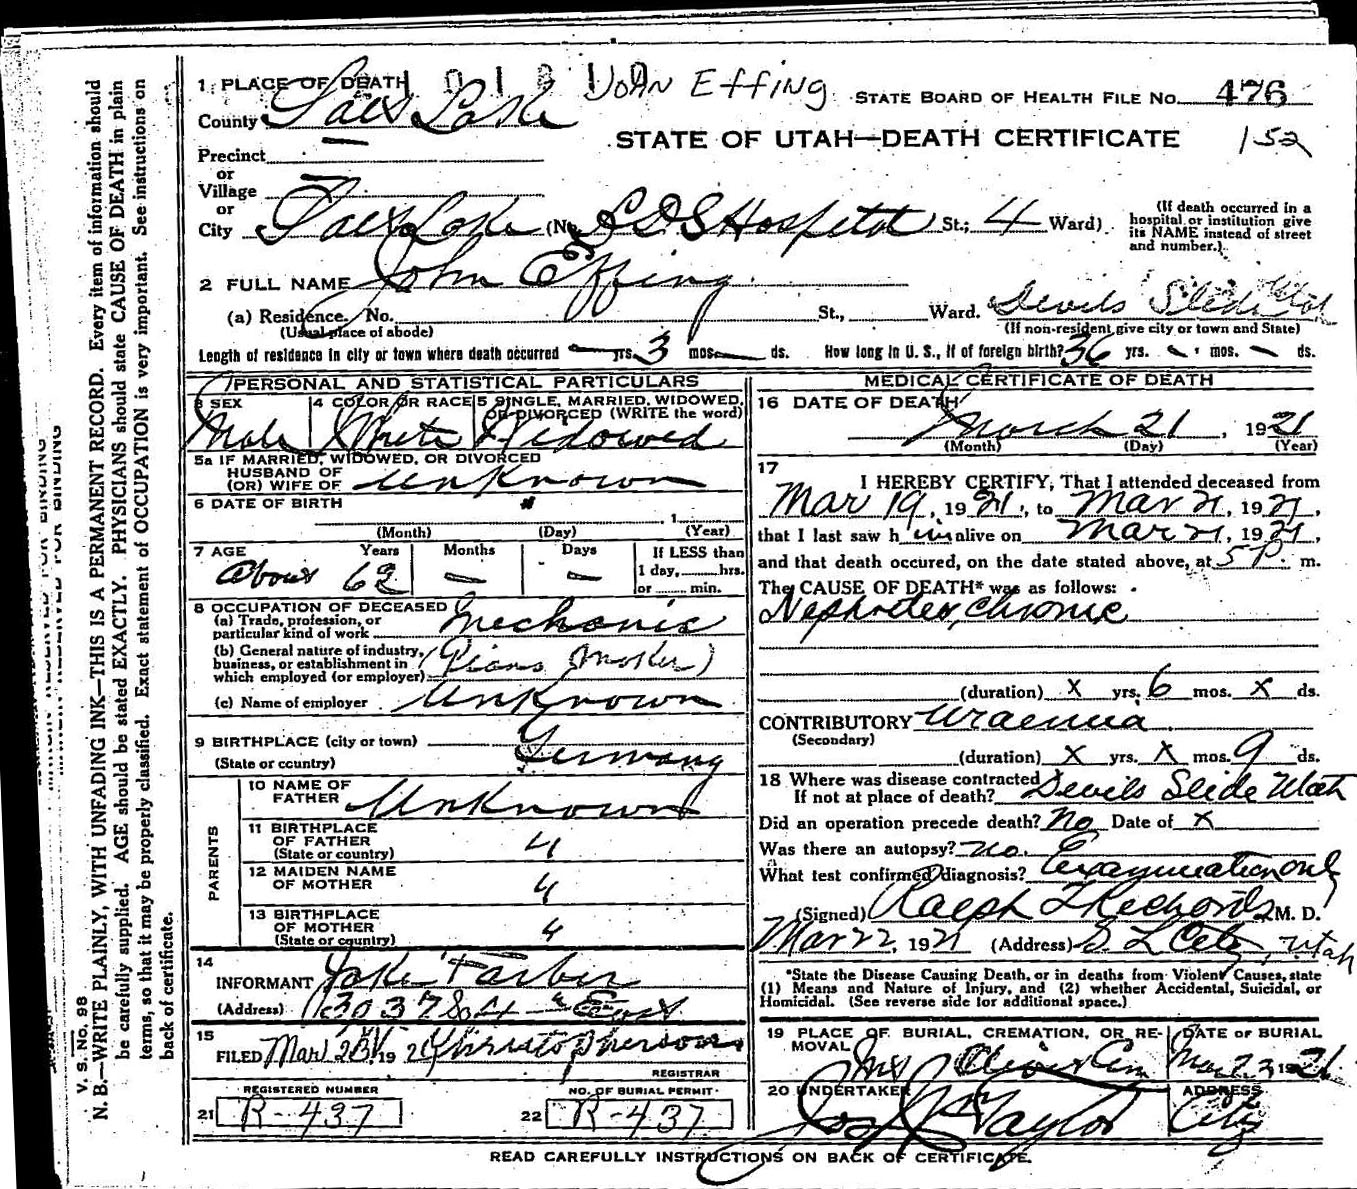 1 PLACE OF DEATH JOHN Effing STATE BOARD OF HEALTH FILE No. 476
County Salt Lake
STATE OF UTAH—DEATH CERTIFICATE 152
Precinct
or
Village
or
City Salt Lake (No. LDS Hospital St.; 4 Ward)
(If death occurred in a
hospital or institution give
its NAME instead of street
and number.)
2 FULL NAME John Effing
(a) Residence. No. St., Ward. Devils Slide Utah
(Usual place of abode) (If non-resident give city or town and State)
Length of residence in city or town where death occurred — yrs. 3 mos. — ds. How long in U. S., if of foreign birth? 36 yrs. - mos. - ds.
PERSONAL AND STATISTICAL PARTICULARS
3 SEX 4 COLOR OR RACE 5 SINGLE, MARRIED, WIDOWED,
OR DIVORCED (WRITE the word)
Male White Widowed
5a IF MARRIED, WIDOWED, OR DIVORCED
HUSBAND OF
(OR) WIFE OF Unknown
6 DATE OF BIRTH
, 1
(Month) (Day) (Year)
7 AGE Years Months Days If LESS than
1 day, hrs.
or min.
About 62 — —
8 OCCUPATION OF DECEASED
(a) Trade, profession, or
particular kind of work Mechanic
(b) General nature of industry,
business, or establishment in
which employed (or employer) (Piano Maker)
(c) Name of employer Unknown
9 BIRTHPLACE (city or town)
(State or country) Germany
PARENTS
10 NAME OF
FATHER Unknown
11 BIRTHPLACE
OF FATHER
(State or country) "
12 MAIDEN NAME
OF MOTHER "
13 BIRTHPLACE
OF MOTHER
(State or country) "
14
INFORMANT Jake Farber
(Address) 3037 So 4 East
15
FILED Mar 1921 Christopherson
REGISTRAR
REGISTERED NUMBER NO. OF BURIAL PERMIT
21 R-437 22 R-437
MEDICAL CERTIFICATE OF DEATH
16 DATE OF DEATH
March 21, 1921
(Month) (Day) (Year)
17
I HEREBY CERTIFY, That I attended deceased from
Mar 19, 1921, to Mar 21, 1921,
that I last saw him alive on Mar 21, 1921,
and that death occured, on the date stated above, at 5 P. m.
The CAUSE OF DEATH* was as follows:
Nephritis, chronic
(duration) x yrs. 6 mos. x ds.
CONTRIBUTORY Uraemia
(Secondary)
(duration) x yrs. x mos. 9 ds.
18 Where was disease contracted
If not at place of death? Devils Slide Utah
Did an operation precede death? No Date of x
Was there an autopsy? no.
What test confirmed diagnosis? Examination only
(Signed) Ralph T Richards M. D.
Mar 22, 1921 (Address) S L City, Utah
*State the Disease Causing Death, or in deaths from Violent Causes, state
(1) Means and Nature of Injury, and (2) whether Accidental, Suicidal, or
Homicidal. (See reverse side for additional space.)
19 PLACE OF BURIAL, CREMATION, OR RE-
MOVAL DATE OF BURIAL
Mt Olivet Cem Mar 23 1921
20 UNDERTAKER ADDRESS
Jos Wm Taylor City
READ CAREFULLY INSTRUCTIONS ON BACK OF CERTIFICATE.
V. S. No. 98
N. B.—WRITE PLAINLY, WITH UNFADING INK—THIS IS A PERMANENT RECORD. Every item of information should
be carefully supplied. AGE should be stated EXACTLY. PHYSICIANS should state CAUSE OF DEATH in plain
terms, so that it may be properly classified. Exact statement of OCCUPATION is very important. See instructions on
back of certificate.
MARGIN RESERVED FOR BINDING